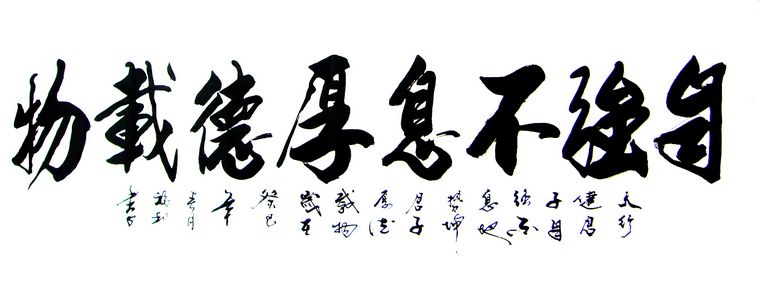 自強不息厚德載物
天行
健君
子自
強不
息地
勢坤
君子
厚德
載物
歲在
癸巳
年